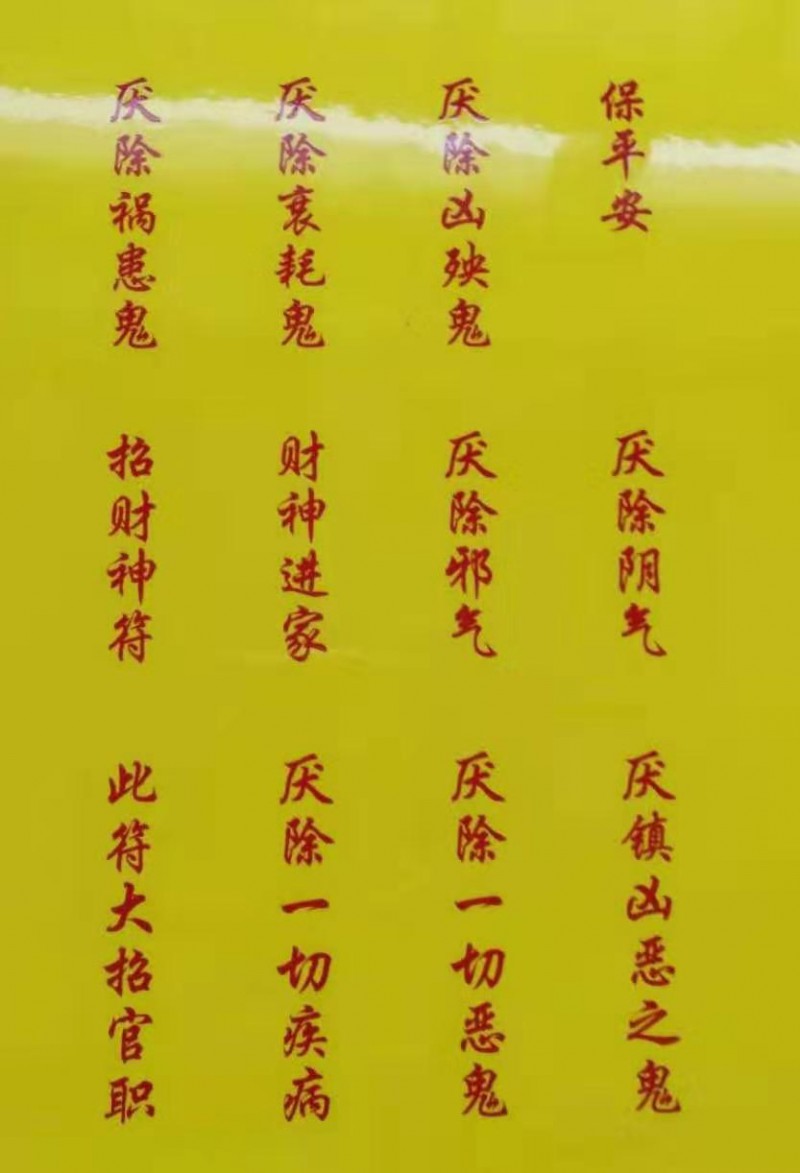 保平安
厌除凶殃鬼
厌除衰耗鬼
厌除祸患鬼
厌除阴气
厌除邪气
财神进家
招财神符
厌镇凶恶之鬼
厌除一切恶鬼
厌除一切疾病
此符大招官职